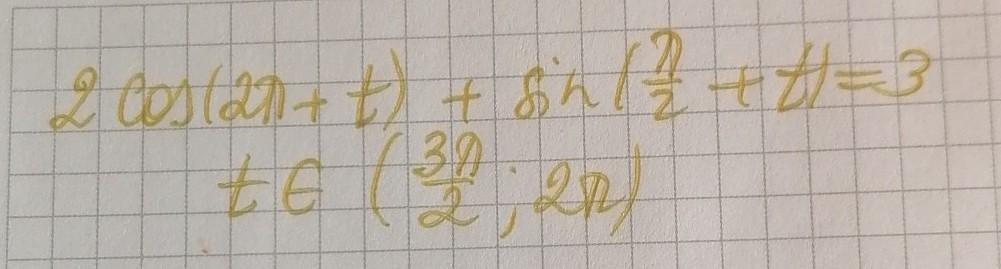 2 cos(2π + t) + sin(π/2 + t) = 3
t ∈ (3π/2 ; 2π)